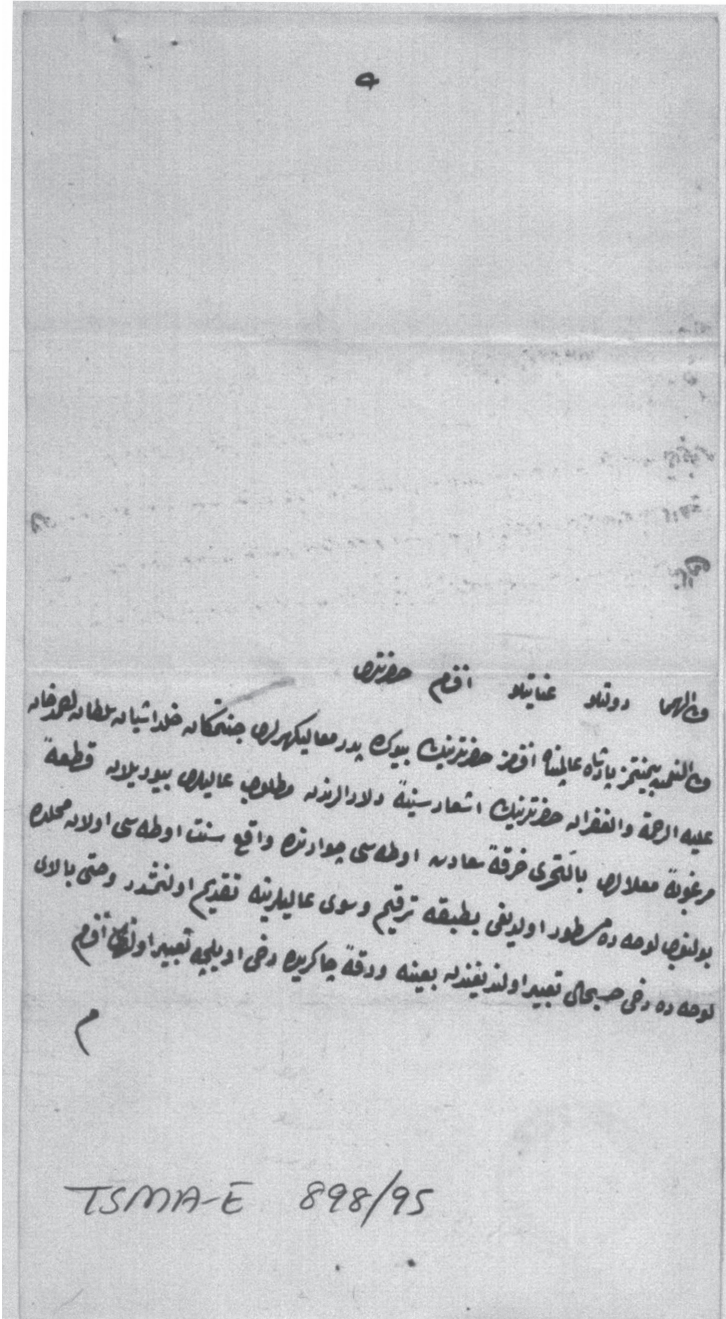 ه
ولی الهمما دولتلو عنایتلو افندم حضرتلری
ولی النعمه بیمنتمز پادشاه عالمپناه افندمز حضرتلرینك بیوك پدر معالیكهرلری جنتمكان خلد آشیان سلطان احمد خان
علیه الرحمة والغفران حضرتلرینك اشعار سنیه دلارالرندن مطلوب عالیلری بیوریلان قطعهٔ
مرغوبهٔ معلالری بالتحری خرقهٔ سعادت اوطه سی جوارنده واقع سنت اوطه سی اولان محلده
بولنوب لوحه ده مسطور اولدیغی بطبقه ترقیم وسوی عالیلرینه تقدیم اولنمشدر وحتی بالای
لوحه ده دخی حسبحالی تعبیر اولندیغندن بعینه ورقهٔ چاكریده دخی اویلجه تعبیر اولنمشدر افندم
م
TSMA-E 898/95